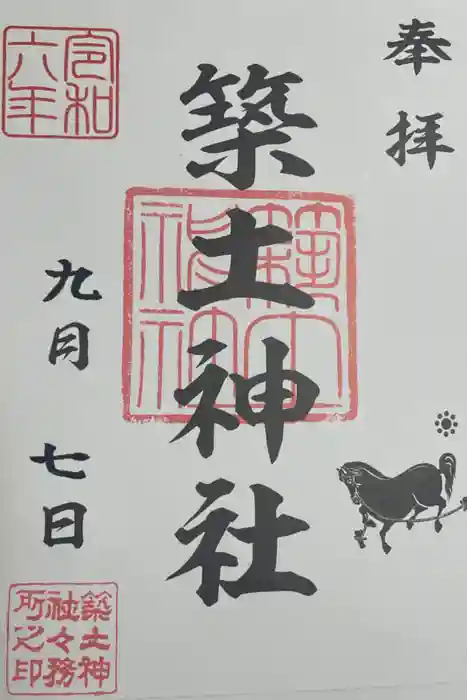 奉拝
築土神社
令和六年
九月七日
築土神社
築土神社々務所之印